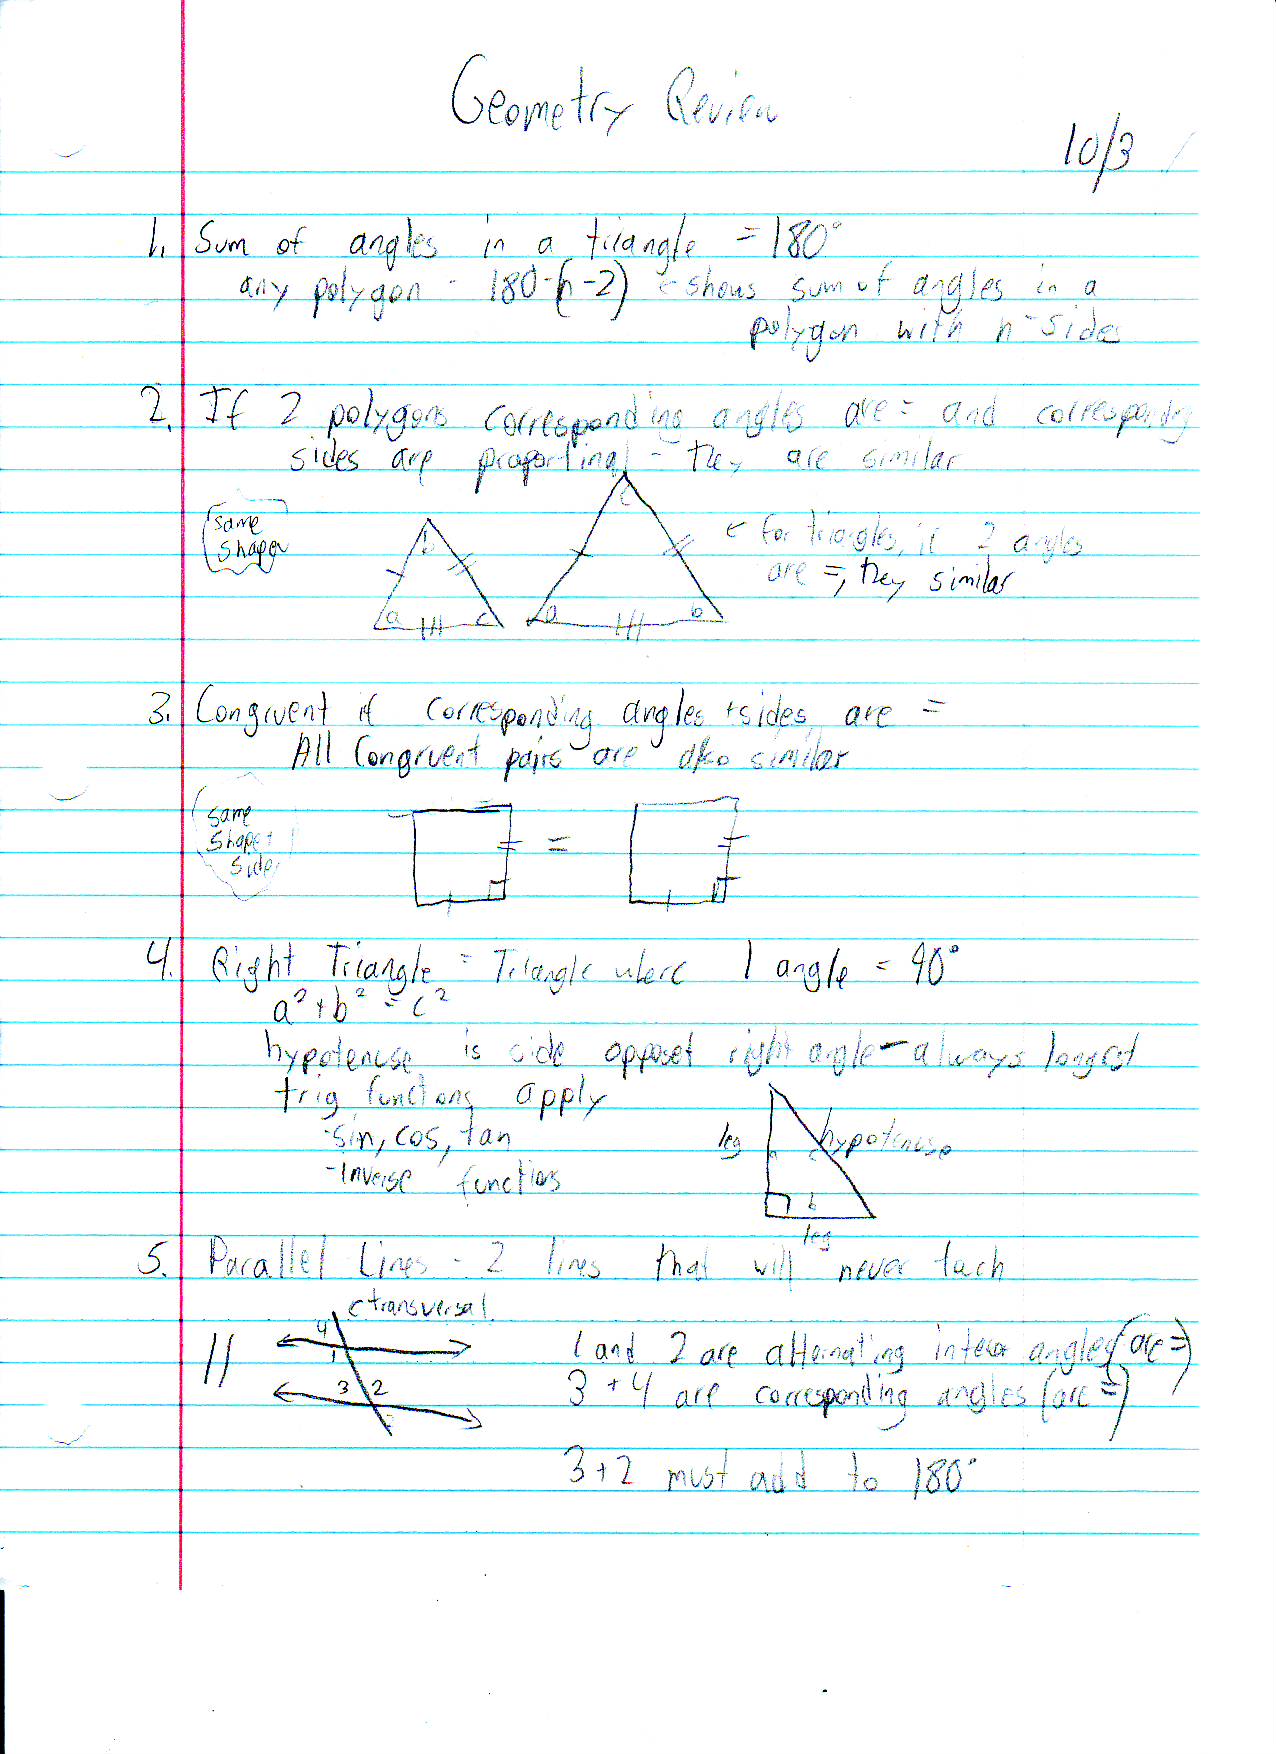 Geometry Review
10/3
1. Sum of angles in a triangle = 180°
any polygon - 180·(n-2) ← shows sum of angles in a
polygon with n-sides
2. If 2 polygons corresponding angles are = and corresponding
sides are proportinal - they are similar
same
shape
b
a
c
c
a
b
← For triangles, if 2 angles
are =, they similar
3. Congruent if corresponding angles + sides are =
All Congruent pairs are also similar
same
shape +
side
=
4. Right Triangle = Triangle where 1 angle = 90°
a² + b² = c²
hypotenuse is side opposet right angle - always longest
trig functions apply
-sin, cos, tan
-inverse functions
leg
a
c
hypotenuse
b
leg
5. Parallel Lines - 2 lines that will never tuch
//
transversal
4
1
3 2
1 and 2 are alternating interior angles (are =)
3 + 4 are corresponding angles (are =)
3+2 must add to 180°